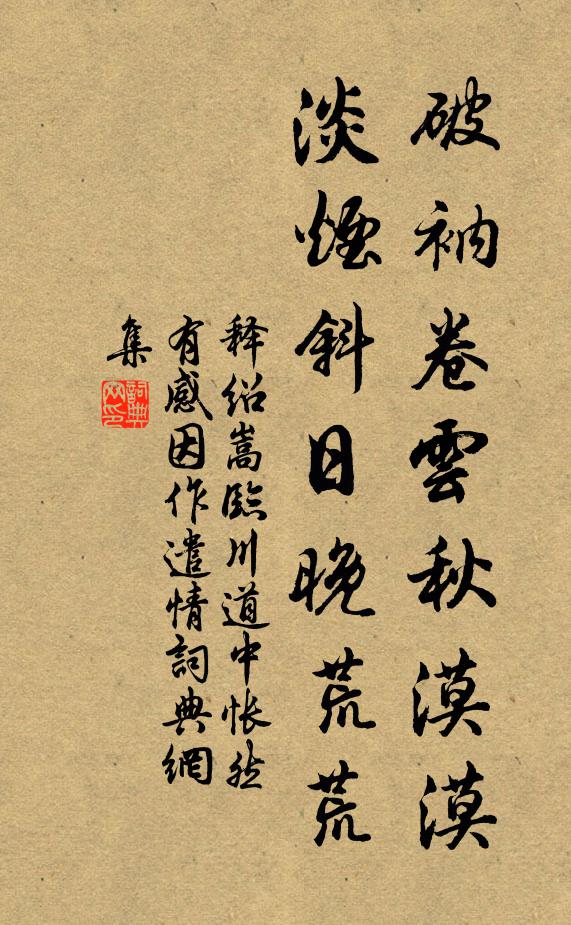 破衲卷雲秋漠漠
淡煙斜日晚荒荒
释绍嵩臨川道中怅然
有感因作遣情詞典網
集
詞典
网印